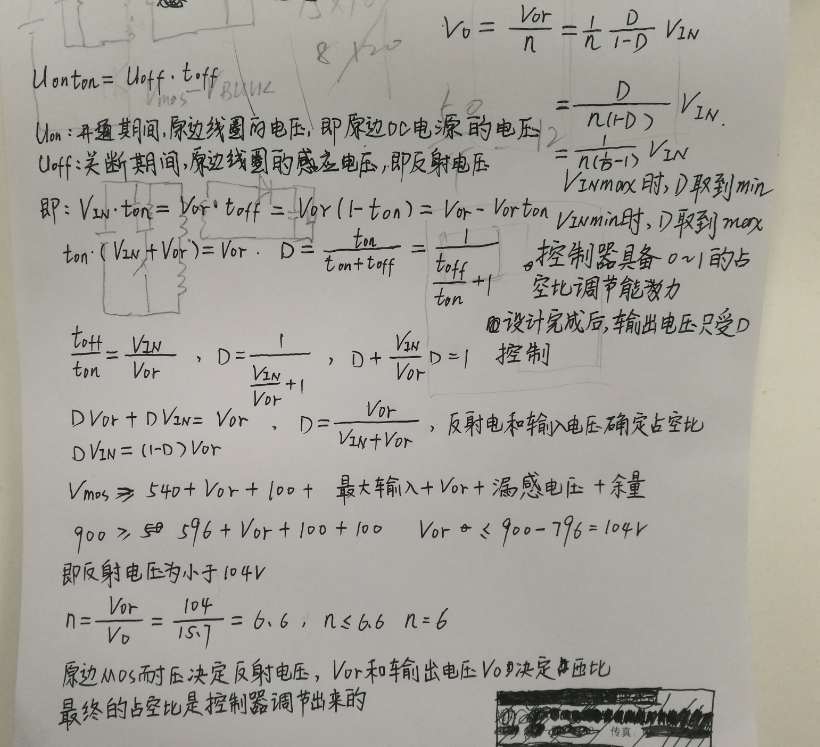 Vo = Vor/n = 1/n D/(1-D) VIN
Uonton = Uoff · toff
= D/(n(1-D)) VIN.
Uon: 开通期间,原边线圈的电压,即原边DC电源的电压
= 1/(n(1/D-1)) VIN
Uoff: 关断期间,原边线圈的感应电压,即反射电压
VINmax时,D取到min
即: VIN · ton = Vor · toff = Vor(1-ton) = Vor - Vorton
VINmin时,D取到max
ton · (VIN + Vor) = Vor . D = ton/(ton+toff) = 1/(toff/ton + 1)
控制器具备0~1的占
空比调节能力
设计完成后,输出电压只受D
控制
toff/ton = VIN/Vor , D = 1/(VIN/Vor + 1) , D + VIN/Vor D = 1
DVor + DVIN = Vor , D = Vor/(VIN+Vor) , 反射电和输入电压确定占空比
DVIN = (1-D)Vor
Vmos ≥ 540 + Vor + 100 + 最大输入 + Vor + 漏感电压 + 余量
900 ≥ 596 + Vor + 100 + 100 Vor ≤ 900 - 796 = 104V
即反射电压为小于104V
n = Vor/Vo = 104/15.7 = 6.6 , n ≤ 6.6 n = 6
原边MOS耐压决定反射电压, Vor和输出电压Vo决定匝比
最终的占空比是控制器调节出来的
传真: